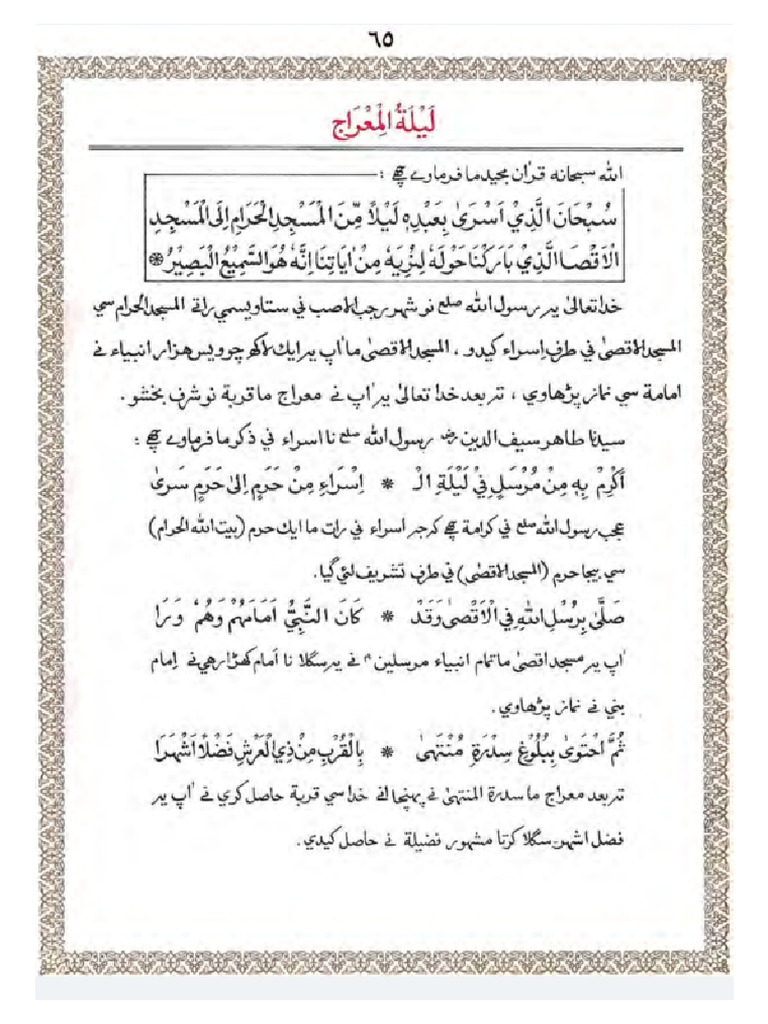 ٦٥
لَيْلَةُ الْمِعْرَاج
الله سبحانه قران مجيد ما فرماوے چھے :
سُبْحَانَ الَّذِيْ اَسْرَىٰ بِعَبْدِهٖ لَيْلًا مِّنَ الْمَسْجِدِ الْحَرَامِ اِلَى الْمَسْجِدِ
الْاَقْصَا الَّذِيْ بَارَكْنَا حَوْلَهٗ لِنُرِيَهٗ مِنْ اٰيَاتِنَا اِنَّهٗ هُوَ السَّمِيْعُ الْبَصِيْرُ ۞
خدا تعالىٰ يہ رسول الله صلع نو شهر رجب الاصب ني ستاويسمي راتے المسجد الحرام سي
المسجد الاقصىٰ ني طرف اِسراء كيدو ، المسجد الاقصىٰ ما اٰپ يہ ايك لاكھ چوويس هزار انبياء نے
امامة سي نماز پڑھاوي ، تہ بعد خدا تعالىٰ يہ اٰپ نے معراج ما قربة نو شرف بخشو .
سيدنا طاهر سيف الدين رض رسول الله صلع نا اسراء ني ذكر ما فرماوے چھے :
اَكْرِمْ بِهٖ مِنْ مُرْسَلٍ فِيْ لَيْلَةِ الْـ * اِسْرَاءِ مِنْ حَرَمٍ اِلىٰ حَرَمٍ سَرىٰ
عجب رسول الله صلع ني كرامة چھے كہ جہ اسراء ني رات ما ايك حرم (بيت الله الحرام)
سي بيجا حرم (المسجد الاقصىٰ) ني طرف تشريف لئي گيا.
صَلَّىٰ بِرُسْلِ اللهِ فِي الْاَقْصىٰ وَقَدْ * كَانَ النَّبِيُّ اَمَامَهُمْ وَهُمْ وَرَا
اٰپ يہ مسجد اقصىٰ ما تمام انبياء مرسلين ع نے يہ سگلا نا اَمام كھڑا رهي نے اِمام
بني نے نماز پڑھاوي .
ثُمَّ احْتَوىٰ بِبُلُوْغِ سِدْرَةِ مُنْتَهىٰ * بِالْقُرْبِ مِنْ ذِي الْعَرْشِ فَضْلًا اَشْهَرَا
تہ بعد معراج ما سدرة المنتهىٰ نے پهنچا انے خدا سي قربة حاصل كري نے اٰپ يہ
فضل اشهر سگلا كرتا مشهور فضيلة نے حاصل كيدي .